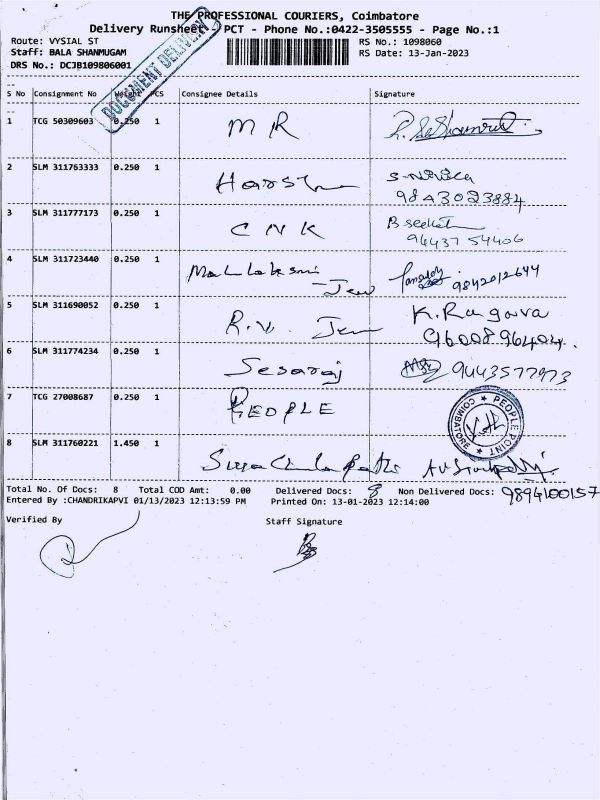 THE PROFESSIONAL COURIERS, Coimbatore
Delivery Runsheet - PCT - Phone No.:0422-3505555 - Page No.:1
Route: VYSIAL ST
RS No.: 1098060
Staff: BALA SHANMUGAM
RS Date: 13-Jan-2023
DRS No.: DCJB109806001
DOCUMENT DELIVERY
S No Consignment No Weight PCS Consignee Details Signature
1 TCG 50309603 0.250 1 M R
2 SLM 311763333 0.250 1 Harsh
9843023884
3 SLM 311777173 0.250 1 C N K
94437 54406
4 SLM 311723440 0.250 1 Mahalaksmi Jew 9842012644
5 SLM 311690052 0.250 1 R.V. Jew K.Ragava
9600896404.
6 SLM 311774234 0.250 1 Sesaraj 9443577973
7 TCG 27008687 0.250 1 PEOPLE
PEOPLE POINT ★ COIMBATORE ★
8 SLM 311760221 1.450 1
Total No. Of Docs: 8 Total COD Amt: 0.00 Delivered Docs: 8 Non Delivered Docs: 9894100157
Entered By :CHANDRIKAPVI 01/13/2023 12:13:59 PM Printed On: 13-01-2023 12:14:00
Verified By Staff Signature